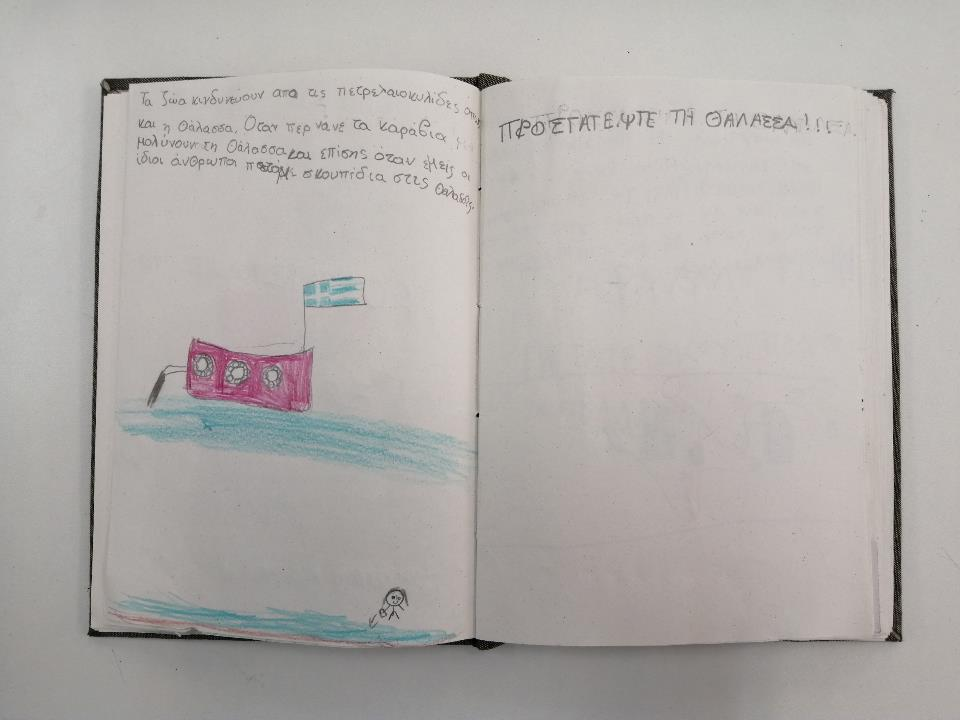 Τα ζώα κινδυνεύουν απο τις πετρελαιοκυλίδες όπως
και η Θάλασσα. Όταν περνάνε τα καράβια
μολύνουν τη Θάλασσα και επίσης όταν εμείς οι
ίδιοι άνθρωποι πετάμε σκουπίδια στις Θάλασσες.
ΠΡΟΣΤΑΤΕΨΤΕ ΤΗ ΘΑΛΑΣΣΑ!!!